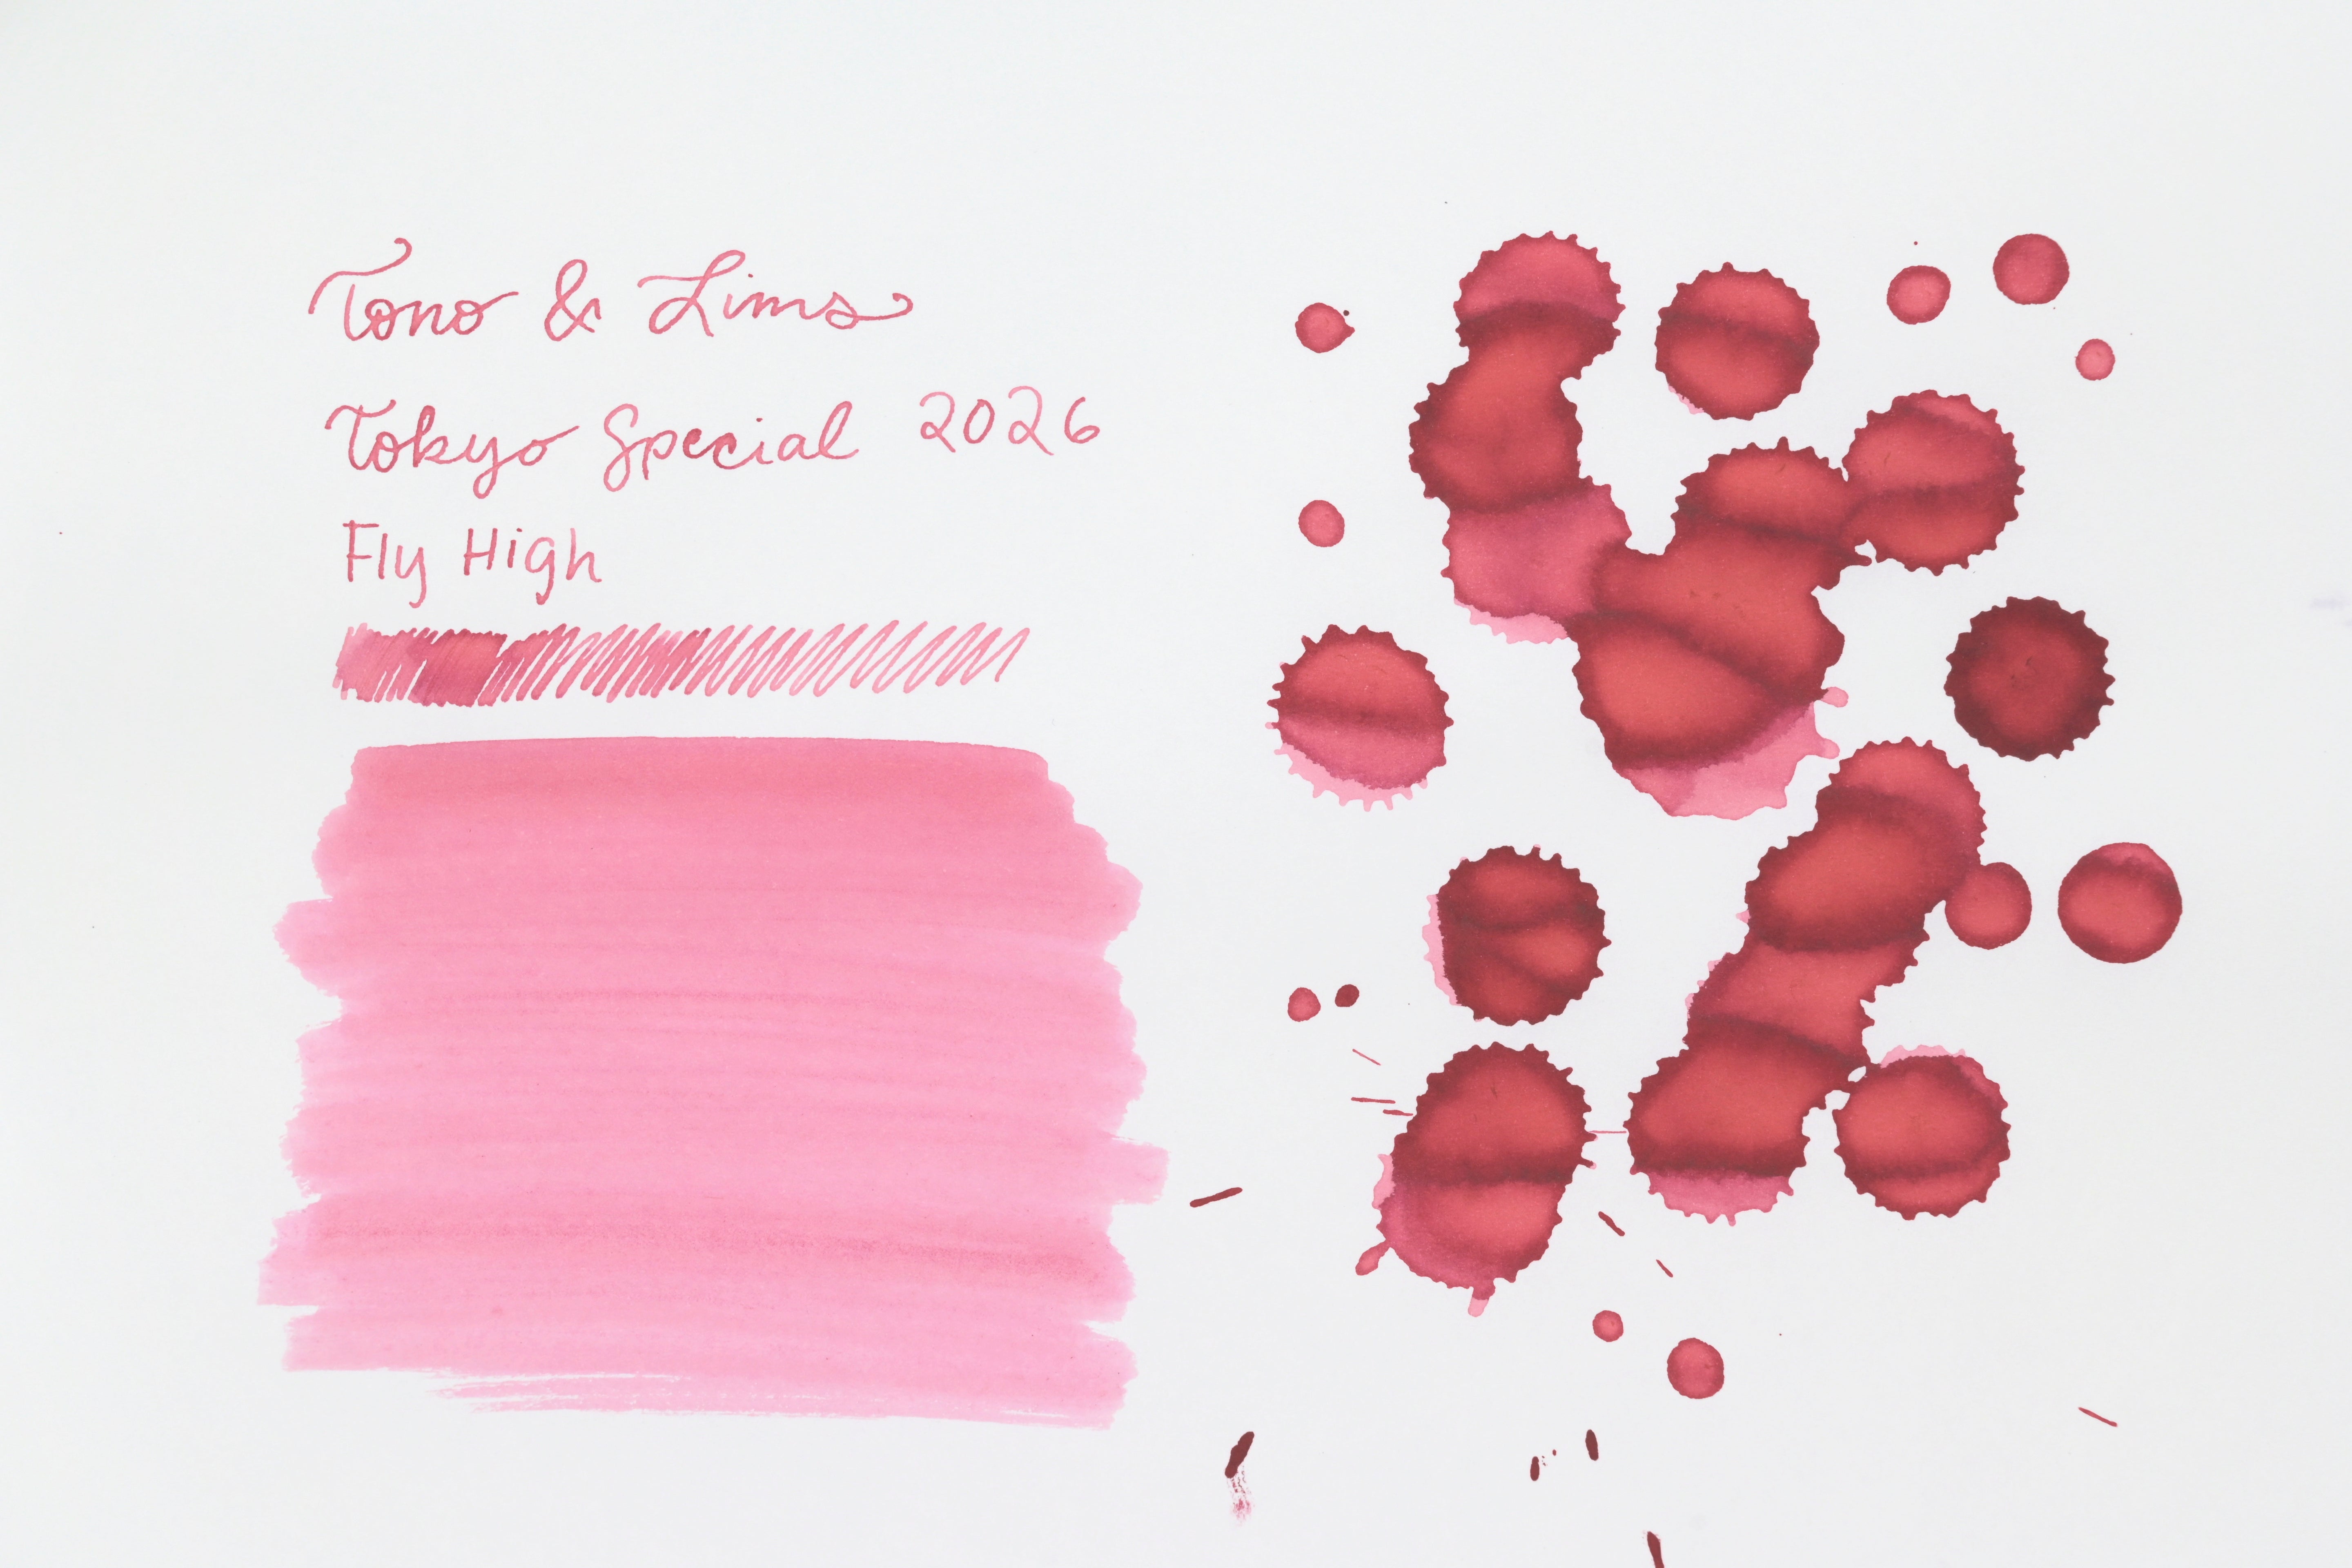 Tono & Lims
Tokyo Special 2026
Fly High